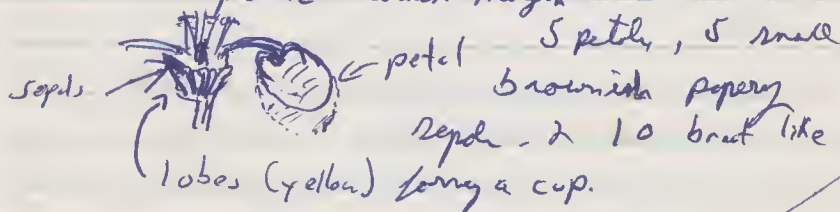 5 petals, 5 small
petal
sepals
brownish papery
sepals - 2 10 bract like
lobes (yellow) forming a cup.